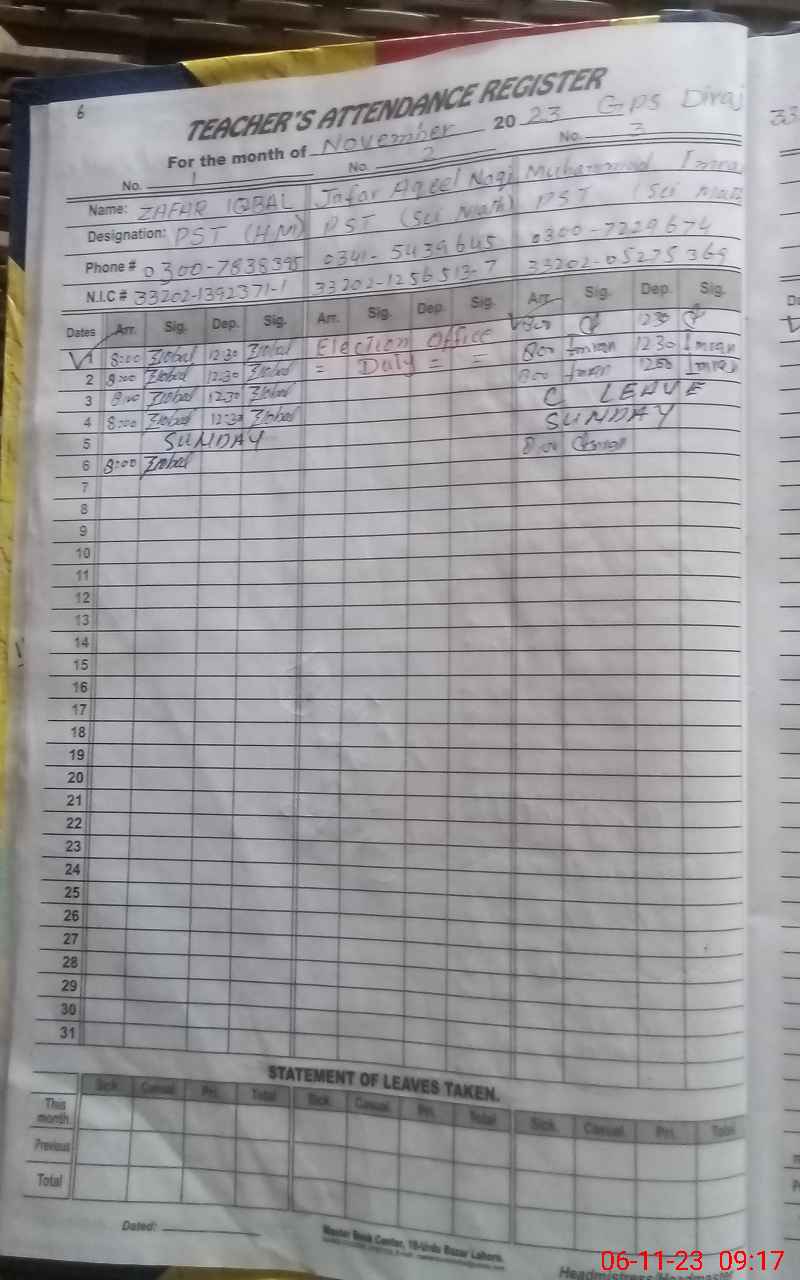 6
TEACHER'S ATTENDANCE REGISTER
For the month of November 20 23 GPS Diraj
No. 1 No. 2 No. 3
Name: ZAFAR IQBAL Jafar Aqeel Naqi Muhammad Imra
Designation: PST (HM) PST (Sci Math) PST (Sci Math
Phone # 0300-7838395 0341-5439645 0300-7229674
N.I.C # 33202-1392371-1 33202-1256513-7 33202-05275369
Dates Arr. Sig. Dep. Sig. Arr. Sig. Dep. Sig. Arr. Sig. Dep. Sig.
1 8:00 12:30 Election Office 800 1230
2 8:00 12:30 = Duty = = 800 Imran 1230 Imran
3 8:00 12:30 800 Imran 1230 Imran
4 8:00 12:30 C LEAVE
5 SUNDAY SUNDAY
6 8:00 8:00
7
8
9
10
11
12
13
14
15
16
17
18
19
20
21
22
23
24
25
26
27
28
29
30
31
STATEMENT OF LEAVES TAKEN.
Sick Casual Pri. Total Sick Casual Pri. Total Sick Casual Pri. Total
This month
Previous
Total
Dated:
Master Book Center, 18-Urdu Bazar Lahore.
06-11-23 09:17